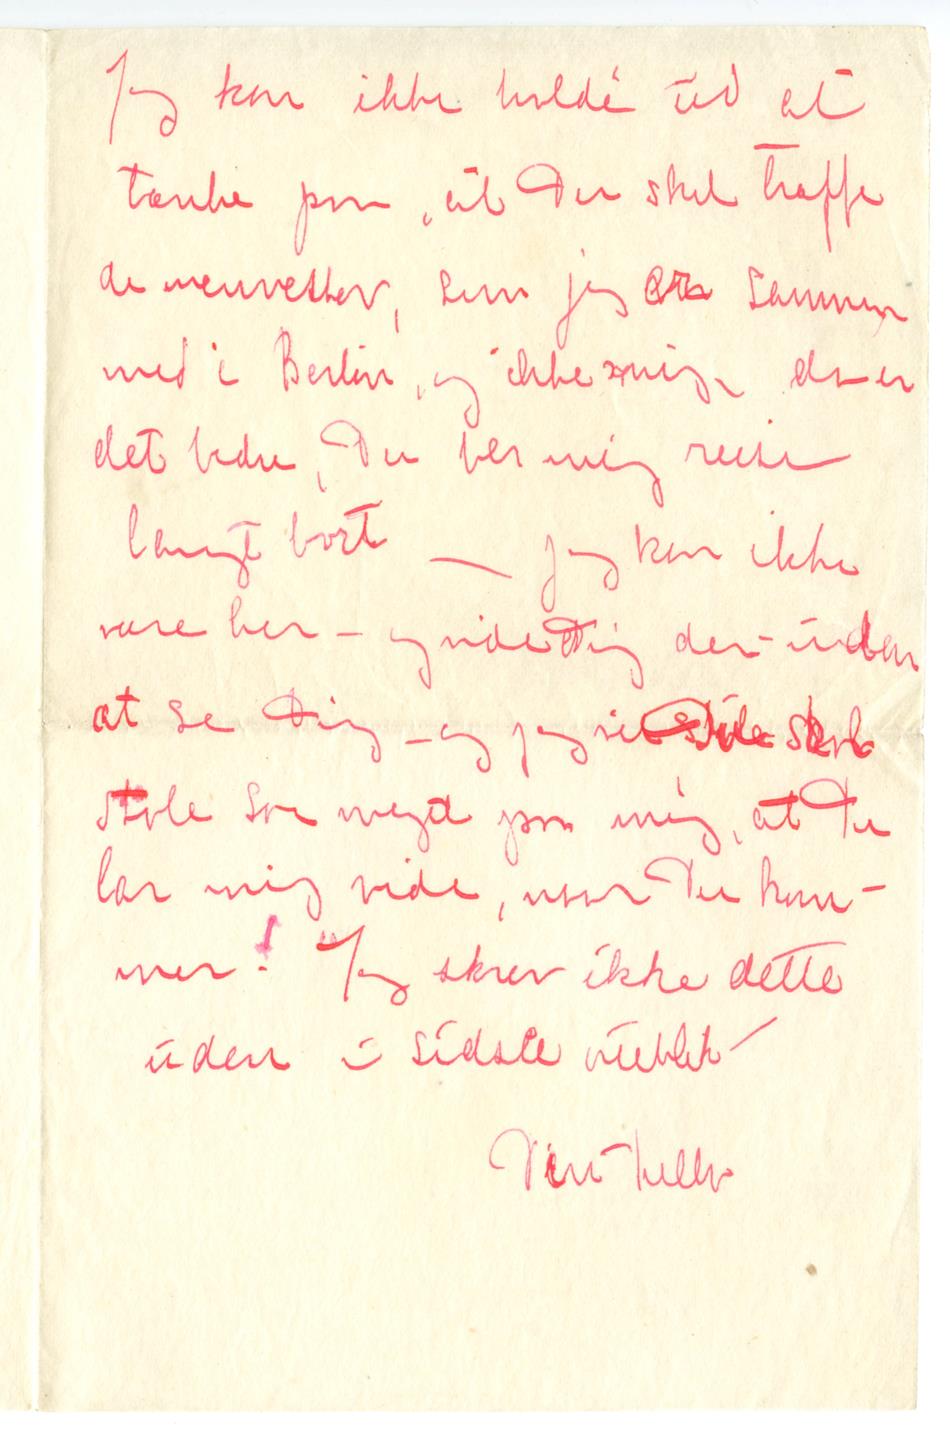 Jeg kan ikke holde ud at
tænke paa, at Du skal træffe
de mennesker, som jeg er sammen
med i Berlin, og ikke mig, da er
det bedre, Du ber mig reise
langt bort — jeg kan ikke
være her – og vide Dig der – uden
at se Dig – og jeg vil skal
stole saa meget paa mig, at Du
lar mig vide, naar Du kom-
mer! Jeg skrev ikke dette
uden i sidste øieblik
Din